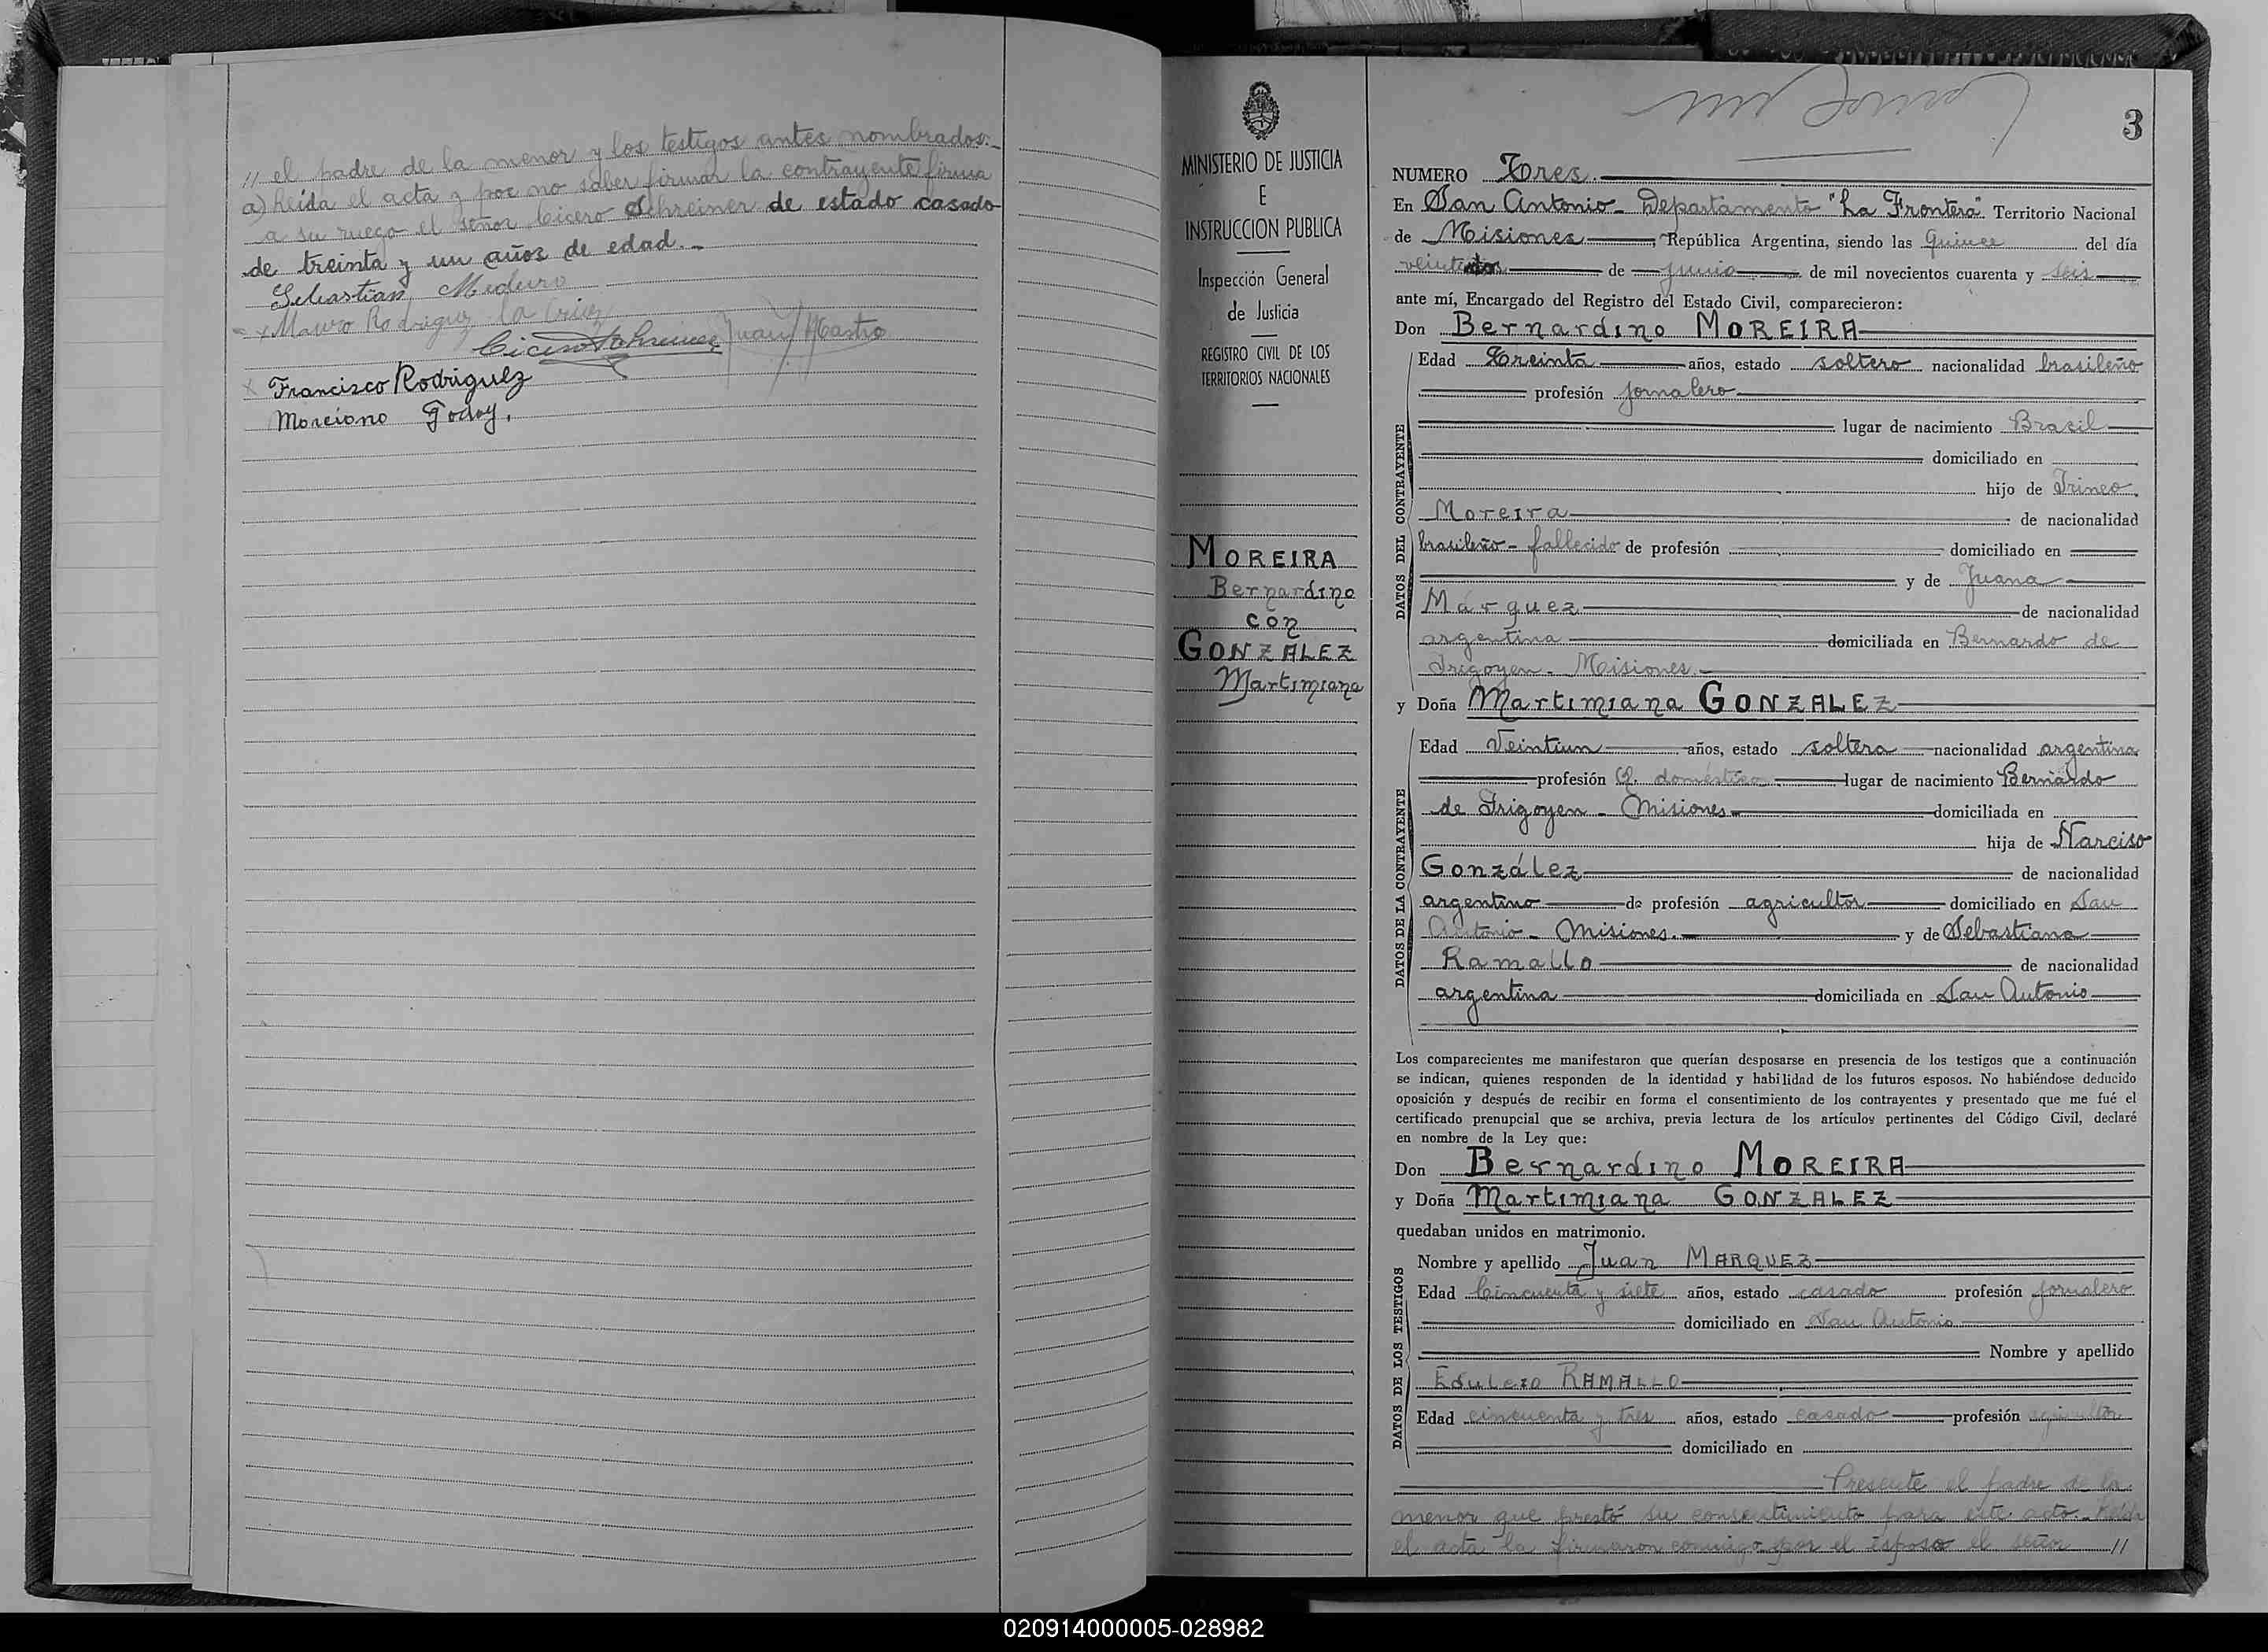 // el padre de la menor y los testigos antes nombrados.-
a) Leida el acta y por no saber firmar la contrayente firma
a su ruego el señor Cicero Schreiner de estado casado
de treinta y un años de edad.-
Sebastian Maduro
x Mauro Rodriguez la Cruz
Cicero Schreiner Juan Mastro
x Francisco Rodriguez
Morciano Godoy.
MINISTERIO DE JUSTICIA
E
INSTRUCCION PUBLICA
Inspección General
de Justicia
REGISTRO CIVIL DE LOS
TERRITORIOS NACIONALES
MOREIRA
Bernardino
con
GONZALEZ
Martimiana
3
NUMERO Tres.
En San Antonio - Departamento "La Frontera" Territorio Nacional
de Misiones República Argentina, siendo las Quince del día
de junio de mil novecientos cuarenta y seis
ante mí, Encargado del Registro del Estado Civil, comparecieron:
Don Bernardino MOREIRA
DATOS DEL CONTRAYENTE
Edad Treinta años, estado soltero nacionalidad brasileño
profesión jornalero
lugar de nacimiento Brasil
domiciliado en
hijo de Irineo
Moreira de nacionalidad
brasileño - fallecido de profesión domiciliado en
y de Juana
Márquez de nacionalidad
argentina domiciliada en Bernardo de
Irigoyen - Misiones
y Doña Martimiana GONZALEZ
DATOS DE LA CONTRAYENTE
Edad Veintiun años, estado soltera nacionalidad argentina
profesión Q. doméstico lugar de nacimiento Bernardo
de Irigoyen - Misiones domiciliada en
hija de Narciso
González de nacionalidad
argentino de profesión agricultor domiciliado en San
Antonio - Misiones. y de Sebastiana
Ramallo de nacionalidad
argentina domiciliada en San Antonio
Los comparecientes me manifestaron que querían desposarse en presencia de los testigos que a continuación
se indican, quienes responden de la identidad y habilidad de los futuros esposos. No habiéndose deducido
oposición y después de recibir en forma el consentimiento de los contrayentes y presentado que me fué el
certificado prenupcial que se archiva, previa lectura de los artículos pertinentes del Código Civil, declaré
en nombre de la Ley que:
Don Bernardino MOREIRA
y Doña Martimiana GONZALEZ
quedaban unidos en matrimonio.
DATOS DE LOS TESTIGOS
Nombre y apellido Juan MARQUEZ
Edad Cincuenta y siete años, estado casado profesión jornalero
domiciliado en San Antonio
Nombre y apellido
RAMALLO
Edad cincuenta y tres años, estado casado profesión agricultor
domiciliado en
Presente el padre de la
menor que prestó su consentimiento para este acto.- Leida
el acta la firmaron conmigo por el esposo el señor //
020914000005-028982